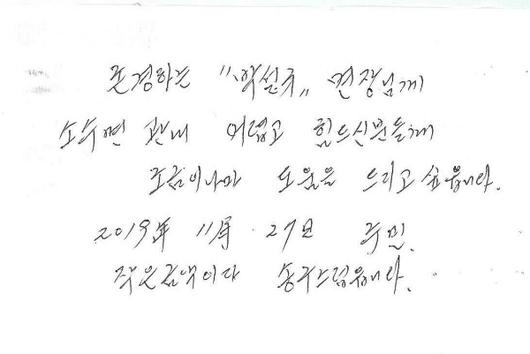 존경하는 "박설규" 면장님께
소수면 관내 어렵고 힘드신분들께
조금이나마 도움을 드리고 싶읍니다.
2019年 11月 27日 주민.
작은금액이라 송구스럽읍니다.